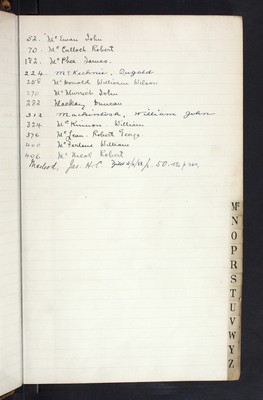 52. McEwan John
70. McCulloch Robert
182. McPhee James.
224. McKechnie, Dugald
258 McDonald William Wilson
270 McMurrich John
282 Mackay Duncan
312 Mackintosh, William John
324 McKinnon William
376 McJean Robert George
400 McFarlane William
406 McNeal Robert
Macleod, Jas. H. C. p. 50.
Mc
N
O
P
R
S
T
U
V
W
Y
Z